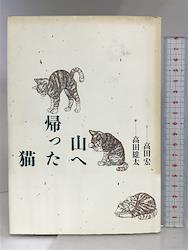 山へ
帰った
猫
高田宏
高田雄太